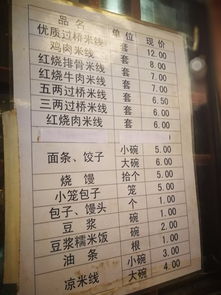 品名 单位 现价
优质过桥米线 套 12.00
鸡肉米线 套 8.00
红烧排骨米线 套 8.00
红烧牛肉米线 套 7.00
五两过桥米线 套 6.50
三两过桥米线 套 6.00
红烧肉米线 套 6.00
面条、饺子 小碗 5.00
大碗 6.00
烧馒 拾个 5.00
小笼包子 笼 5.00
包子、馒头 个 1.00
豆浆 碗 2.00
豆浆糯米饭 碗 2.00
油条 根 1.00
凉米线 小碗 3.00
大碗 4.00